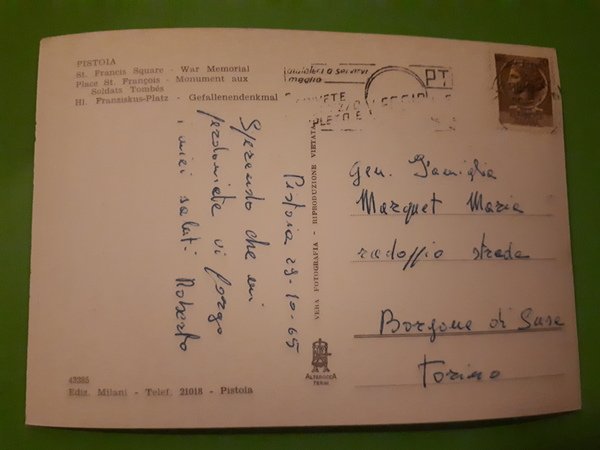 PISTOIA
St. Francis Square - War Memorial
Place St. François - Monument aux
Soldats Tombés
Hl. Franziskus-Platz - Gefallenendenkmal
aiutateci a servirvi
meglio
PT
Pistoia 29-10-65
Sperando che mi
perdoniate vi porgo
i miei saluti Roberto
VERA FOTOGRAFIA - RIPRODUZIONE VIETATA
ALTEROCCA
TERNI
Gen. Famiglia
Marquet Maria
radoppio strada
Borgone di Susa
Torino
43385
Ediz. Milani - Telef. 21018 - Pistoia